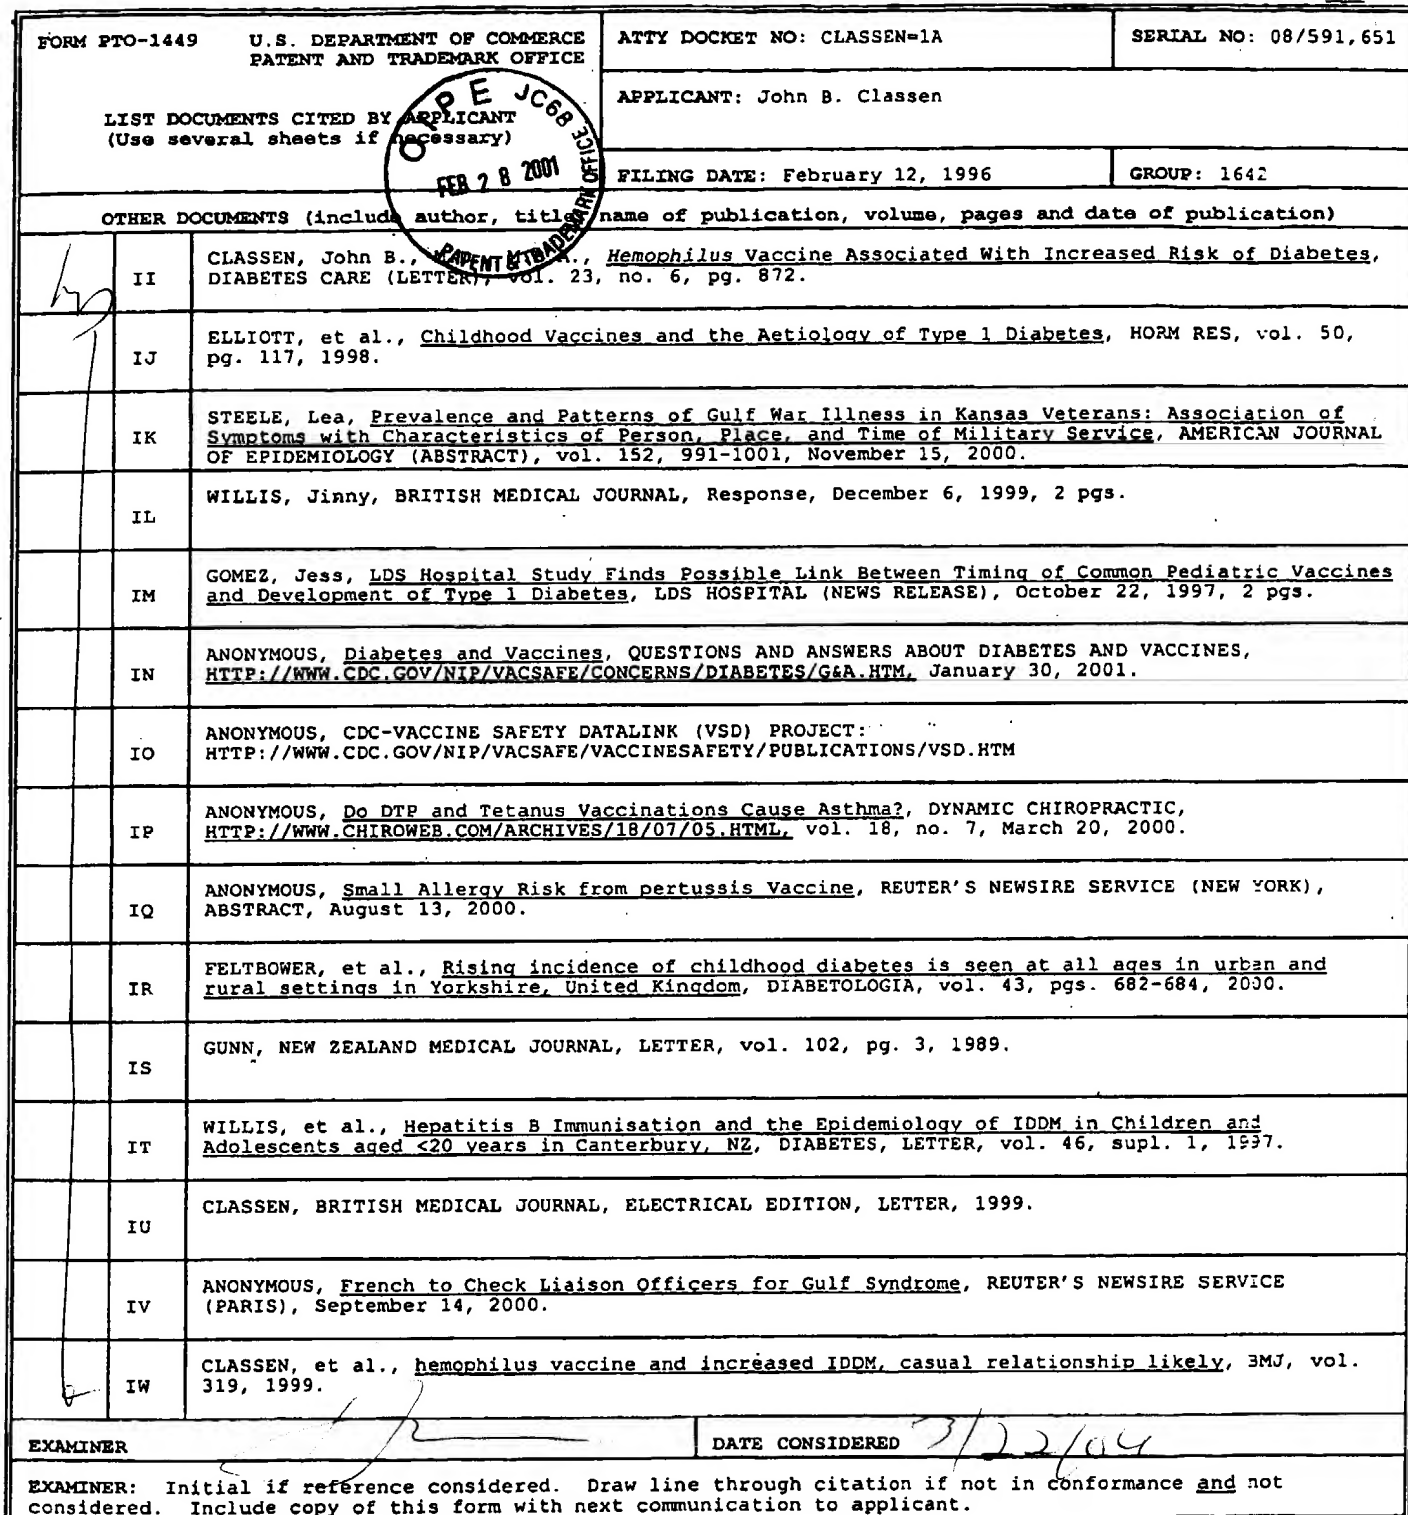 FORM PTO-1449 U.S. DEPARTMENT OF COMMERCE
PATENT AND TRADEMARK OFFICE
LIST DOCUMENTS CITED BY APPLICANT
(Use several sheets if necessary)
ATTY DOCKET NO: CLASSEN=1A
SERIAL NO: 08/591,651
APPLICANT: John B. Classen
FILING DATE: February 12, 1996
GROUP: 1642
OIPE JC68
FEB 28 2001
PATENT & TRADEMARK OFFICE
OTHER DOCUMENTS (include author, title, name of publication, volume, pages and date of publication)
II
CLASSEN, John B., Hemophilus Vaccine Associated With Increased Risk of Diabetes,
DIABETES CARE (LETTER), vol. 23, no. 6, pg. 872.
IJ
ELLIOTT, et al., Childhood Vaccines and the Aetiology of Type 1 Diabetes, HORM RES, vol. 50,
pg. 117, 1998.
IK
STEELE, Lea, Prevalence and Patterns of Gulf War Illness in Kansas Veterans: Association of
Symptoms with Characteristics of Person, Place, and Time of Military Service, AMERICAN JOURNAL
OF EPIDEMIOLOGY (ABSTRACT), vol. 152, 991-1001, November 15, 2000.
IL
WILLIS, Jinny, BRITISH MEDICAL JOURNAL, Response, December 6, 1999, 2 pgs.
IM
GOMEZ, Jess, LDS Hospital Study Finds Possible Link Between Timing of Common Pediatric Vaccines
and Development of Type 1 Diabetes, LDS HOSPITAL (NEWS RELEASE), October 22, 1997, 2 pgs.
IN
ANONYMOUS, Diabetes and Vaccines, QUESTIONS AND ANSWERS ABOUT DIABETES AND VACCINES,
HTTP://WWW.CDC.GOV/NIP/VACSAFE/CONCERNS/DIABETES/G&A.HTM, January 30, 2001.
IO
ANONYMOUS, CDC-VACCINE SAFETY DATALINK (VSD) PROJECT:
HTTP://WWW.CDC.GOV/NIP/VACSAFE/VACCINESAFETY/PUBLICATIONS/VSD.HTM
IP
ANONYMOUS, Do DTP and Tetanus Vaccinations Cause Asthma?, DYNAMIC CHIROPRACTIC,
HTTP://WWW.CHIROWEB.COM/ARCHIVES/18/07/05.HTML, vol. 18, no. 7, March 20, 2000.
IQ
ANONYMOUS, Small Allergy Risk from pertussis Vaccine, REUTER'S NEWSIRE SERVICE (NEW YORK),
ABSTRACT, August 13, 2000.
IR
FELTBOWER, et al., Rising incidence of childhood diabetes is seen at all ages in urban and
rural settings in Yorkshire, United Kingdom, DIABETOLOGIA, vol. 43, pgs. 682-684, 2000.
IS
GUNN, NEW ZEALAND MEDICAL JOURNAL, LETTER, vol. 102, pg. 3, 1989.
IT
WILLIS, et al., Hepatitis B Immunisation and the Epidemiology of IDDM in Children and
Adolescents aged <20 years in Canterbury, NZ, DIABETES, LETTER, vol. 46, supl. 1, 1997.
IU
CLASSEN, BRITISH MEDICAL JOURNAL, ELECTRICAL EDITION, LETTER, 1999.
IV
ANONYMOUS, French to Check Liaison Officers for Gulf Syndrome, REUTER'S NEWSIRE SERVICE
(PARIS), September 14, 2000.
IW
CLASSEN, et al., hemophilus vaccine and increased IDDM, casual relationship likely, BMJ, vol.
319, 1999.
EXAMINER
DATE CONSIDERED 3/22/04
EXAMINER: Initial if reference considered. Draw line through citation if not in conformance and not
considered. Include copy of this form with next communication to applicant.